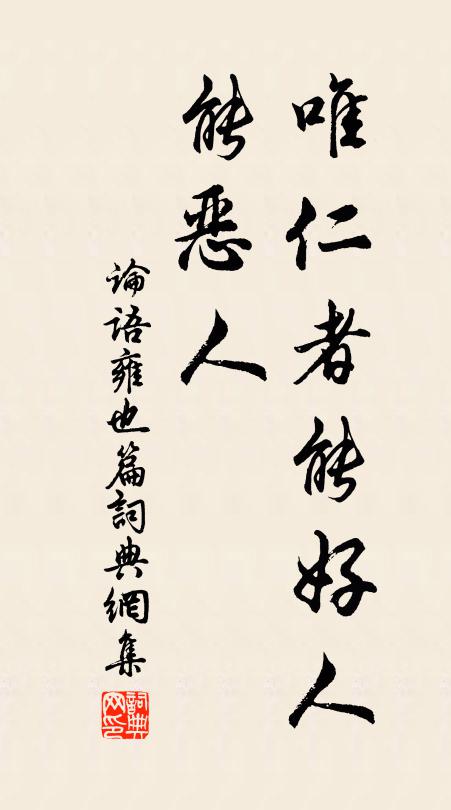 唯仁者能好人
能恶人
论语雍也篇词典網集
詞典网印